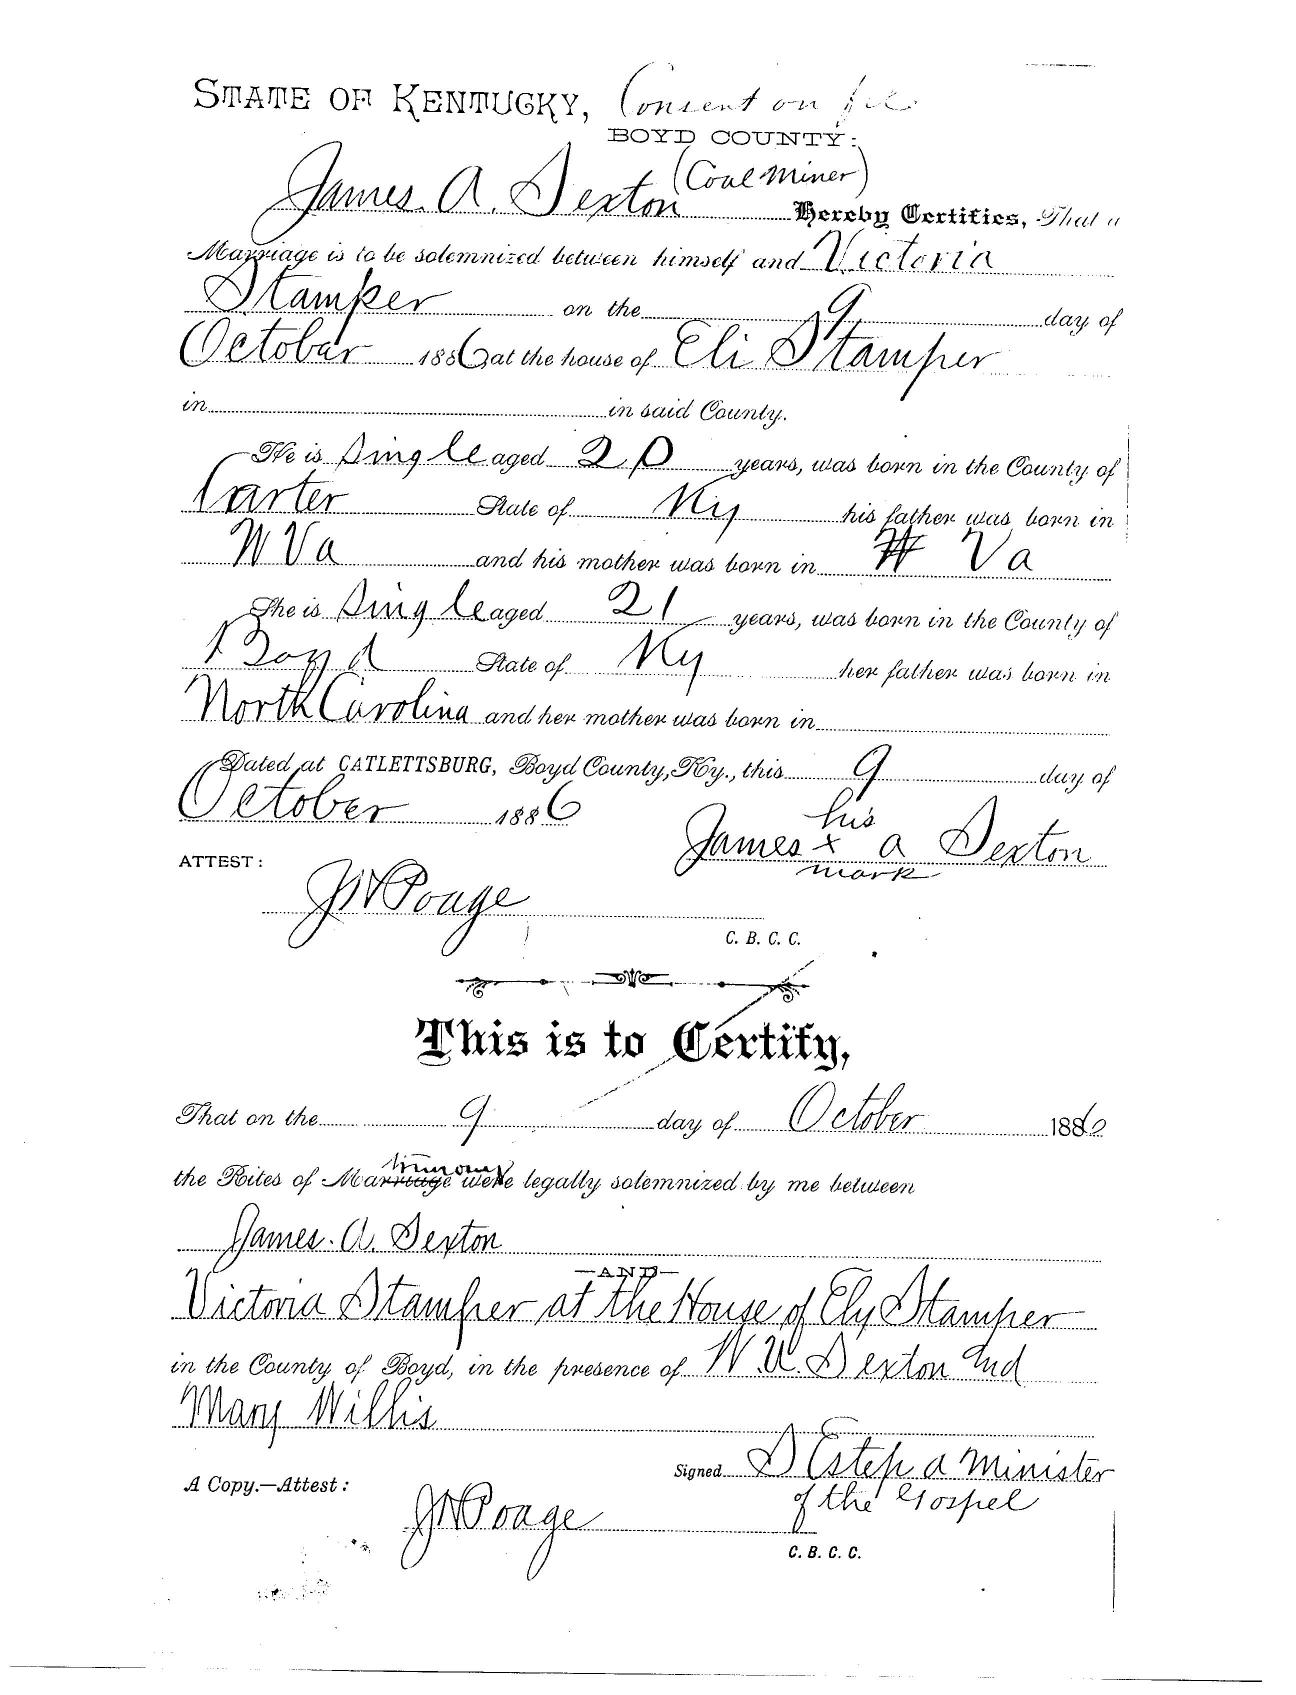 STATE OF KENTUCKY, Consent on file
BOYD COUNTY:
(Coal Miner)
James. A. Sexton Hereby Certifies, That a
Marriage is to be solemnized between himself and Victoria
Stamper on the 9 day of
October 1886 at the house of Eli Stamper
in in said County.
He is Single aged 20 years, was born in the County of
Carter State of Ky his father was born in
W Va and his mother was born in W Va
She is Single aged 21 years, was born in the County of
Boyd State of Ky her father was born in
North Carolina and her mother was born in
Dated at CATLETTSBURG, Boyd County, Ky., this 9 day of
October 1886
his
James x a Sexton
mark
ATTEST:
JW Poage
C. B. C. C.
This is to Certify,
That on the 9 day of October 1886
the Rites of Marriage were legally solemnized by me between
James. A. Sexton
—AND—
Victoria Stamper at the House of Ely Stamper
in the County of Boyd, in the presence of W. U. Sexton And
Mary Willis
Signed S Estep a Minister
of the Gospel
A Copy.—Attest:
JW Poage
C. B. C. C.